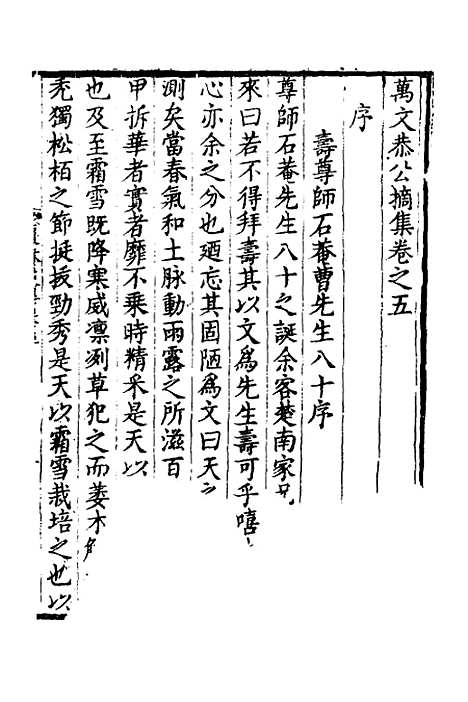 萬文恭公摘集卷之五
序
壽尊師石菴曹先生八十序
尊師石菴先生八十之誕余客楚南家兄
來曰若不得拜壽其以文爲先生壽可乎嘻
心亦余之分也廼忘其固陋爲文曰天之
測矣當春氣和土脉動雨露之所滋百
甲訴華者實者靡不乗時精采是天以
也及至霜雪既降寒威凛冽草犯之而萎木
禿獨松栢之節挺拔勁秀是天以霜雪栽培之也以